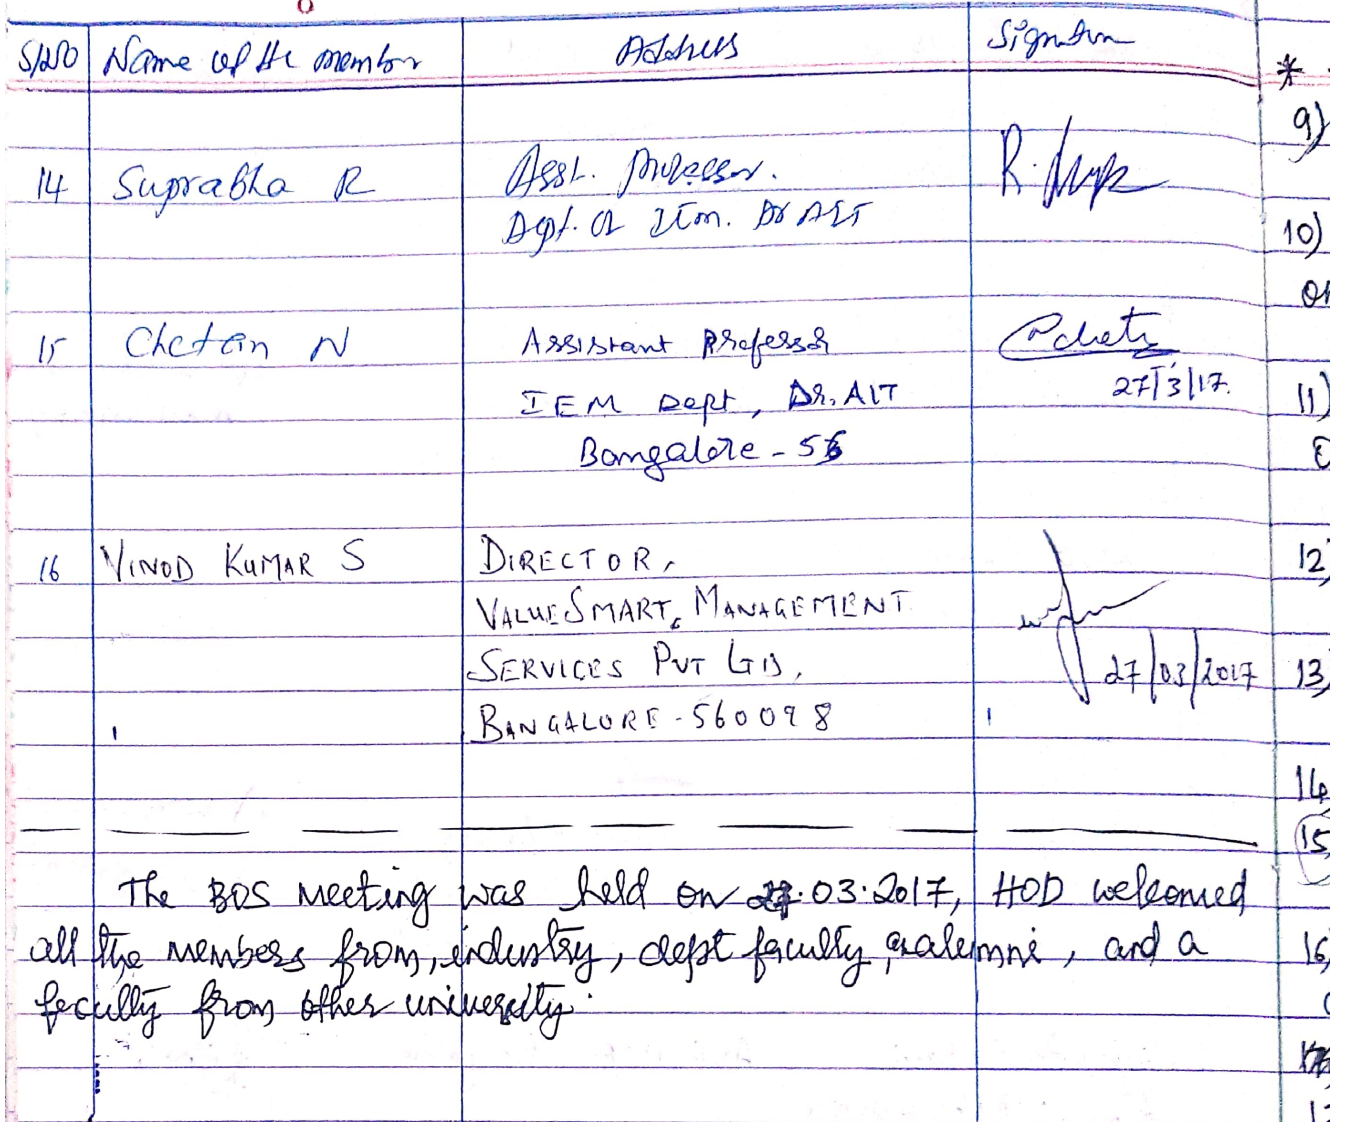 S/NO Name of the member Address Signature
14 Suprabha R Asst. Professor.
Dept. of IEM. Dr AIT
15 Chetan N Assistant Professor
IEM Dept, Dr. AIT 27/3/17.
Bangalore - 56
16 VINOD KUMAR S DIRECTOR,
VALUESMART MANAGEMENT
SERVICES PVT LTD, 27/03/2017
BANGALORE - 560098
The BOS meeting was held on 27.03.2017, HOD welcomed
all the members from, industry, dept faculty, alumni, and a
faculty from other university.
*
9)
10)
11)
12
13
14
15
16